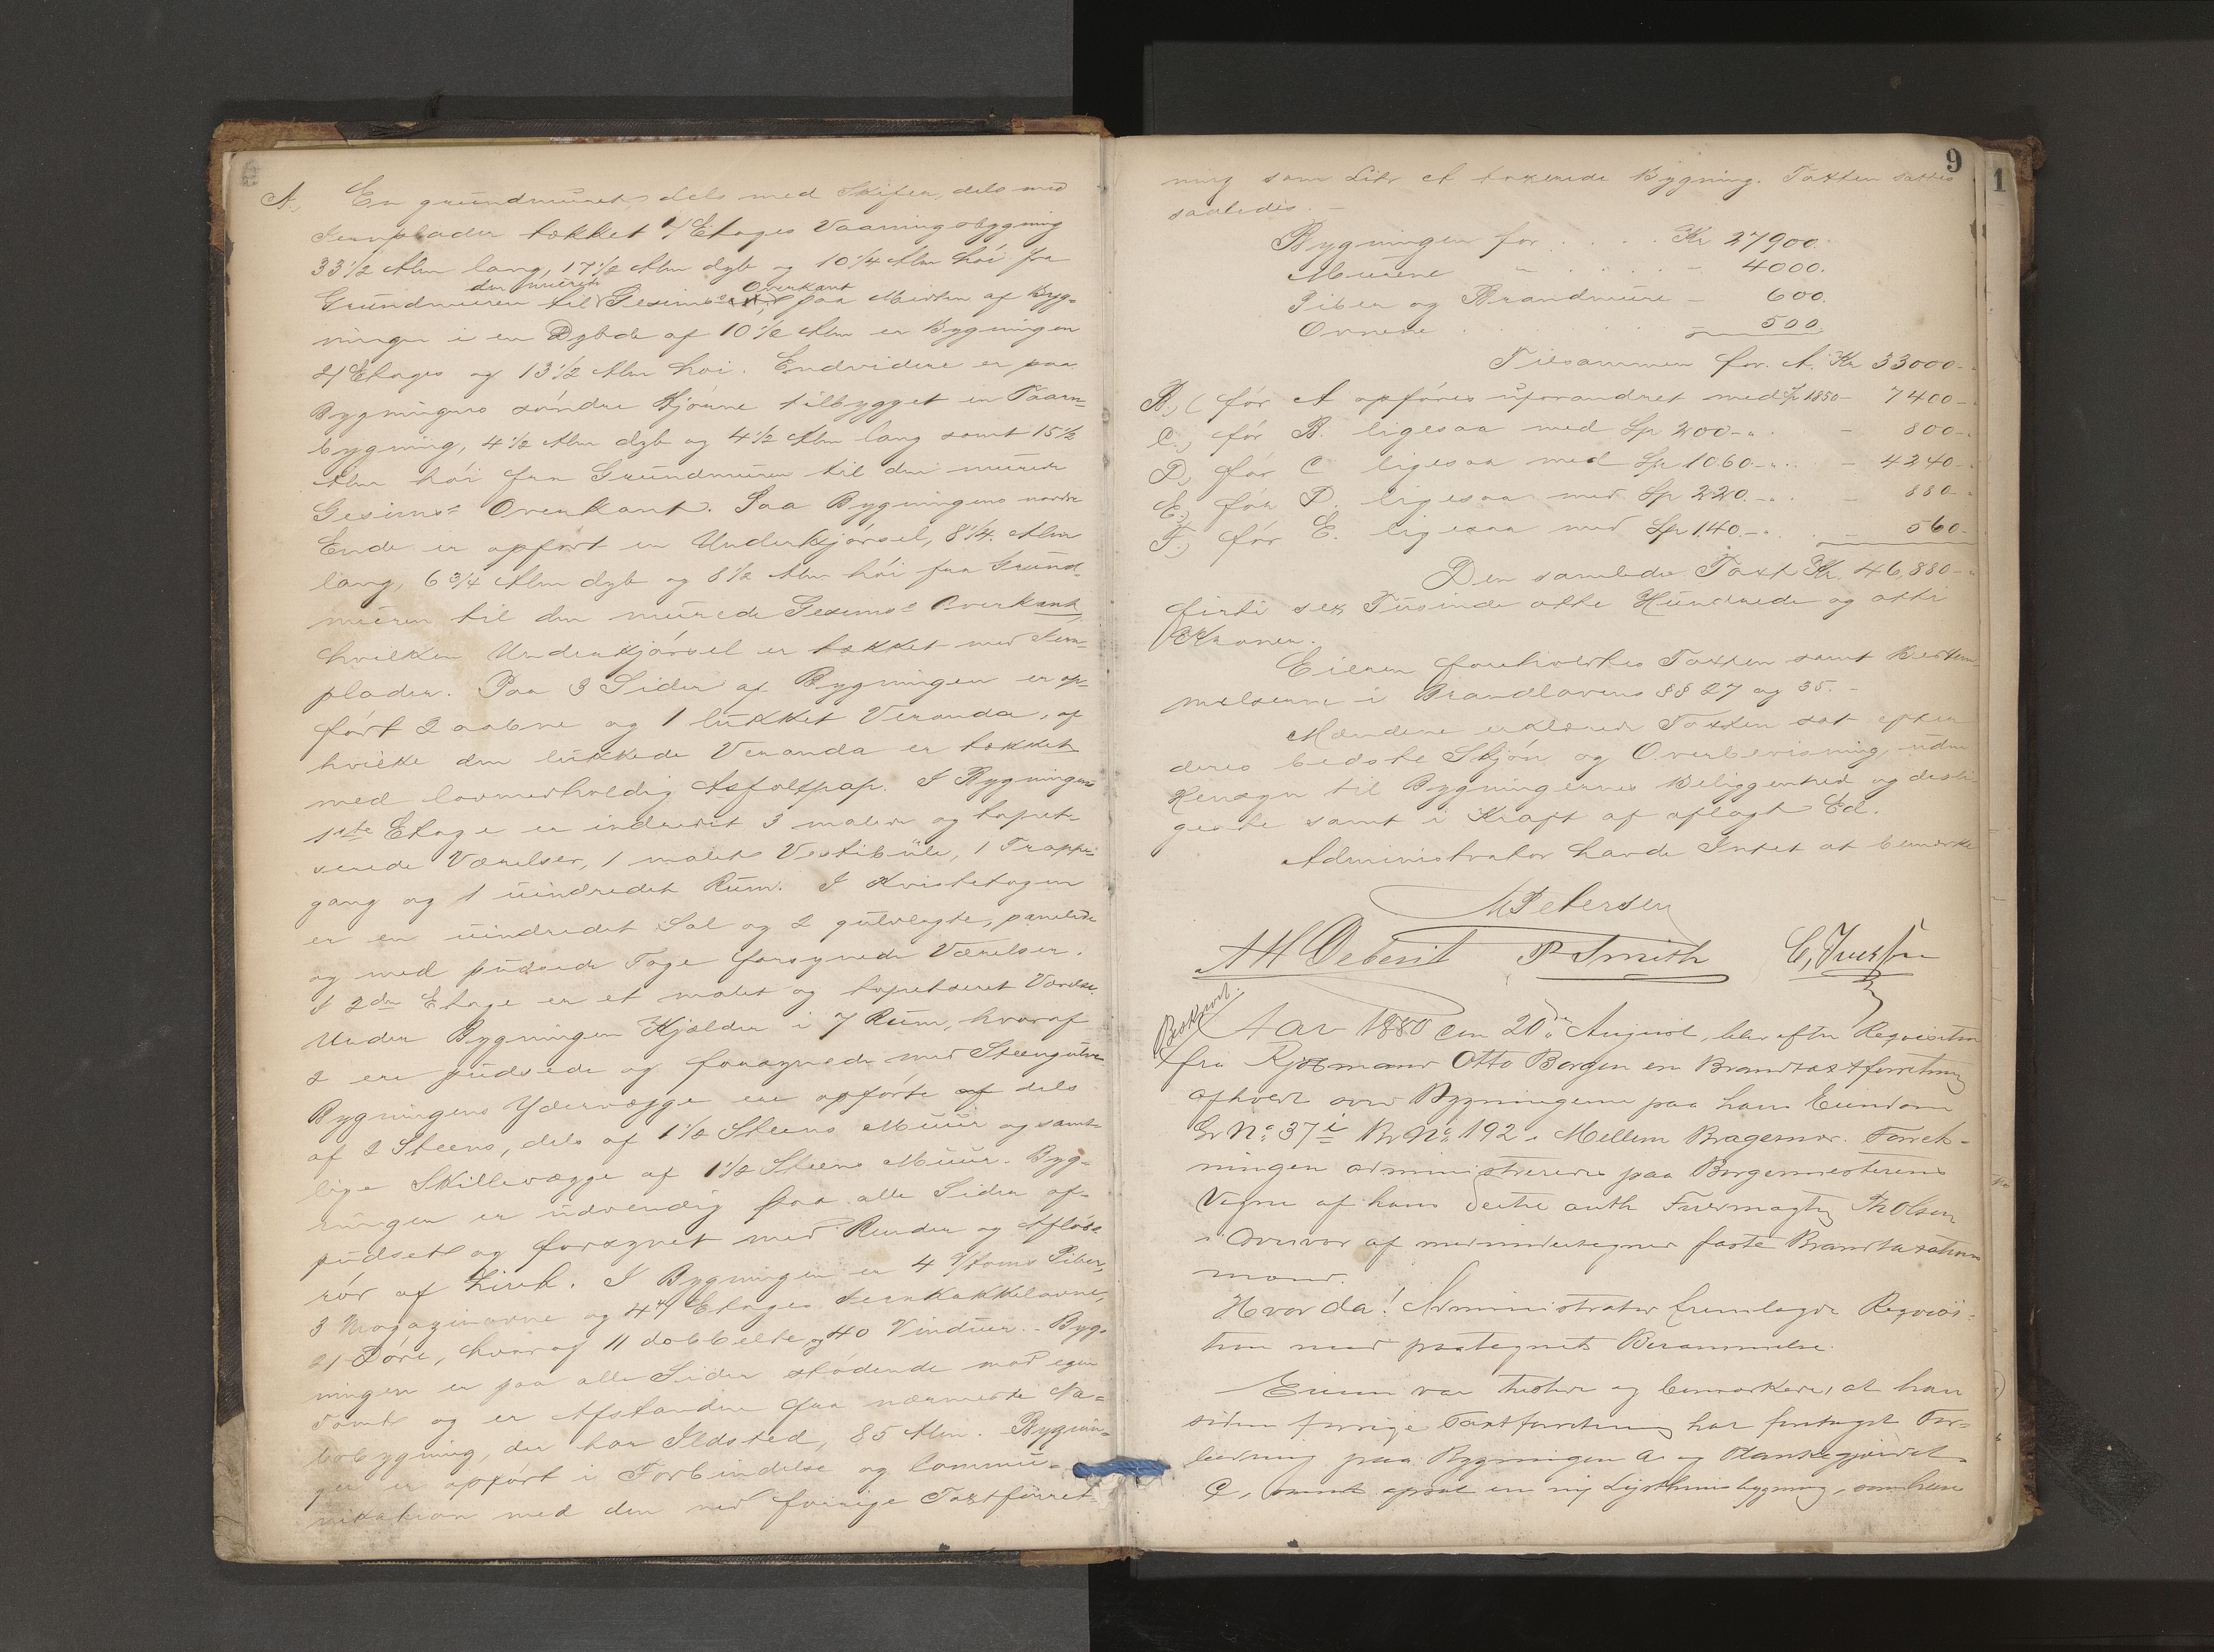 A., En grundmuret, dels med Skifer, dels med
Jernplader tækket 1/ Etages Vaaningsbygning
33 1/2 Alen lang, 17 1/2 Alen dyb og 10 1/4 Alen høi fra
Grundmuren til den murede Gesims Overkant, paa Midten af Byg-
ningen i en Dybde af 10 1/2 Alen er Bygningen
2/ Etages og 13 1/2 Alen høi. Endvidere er paa
Bygningens søndre Hjørne tilbygget en Taarn-
bygning, 4 1/2 Alen dyb og 4 1/2 Alen lang samt 15 1/2
Alen høi fra Grundmuren til den murede
Gesims' Overkant. Paa Bygningens nordre
Ende er opført en Underkjørsel, 8 1/4 Alen
lang, 6 3/4 Alen dyb og 8 1/2 Alen høi fra Grund-
muren til den murede Gesims' Overkant,
hvilken Underkjørsel er tækket med Jern-
plader. Paa 3 Sider af Bygningen er op-
ført 2 aabne og 1 lukket Veranda, af
hvilke den lukkede Veranda er tækket
med lovmedholdig Asfaltpap. I Bygningens
1ste Etage er indredet 3 malede og tapet-
serede Værelser, 1 malet Vestibüle, 1 Trappe-
gang og 1 uindredet Rum. I Kvistetagen
er en uindredet Sal og 2 gulvlagte, panelede
og med pudsede Tage forsynede Værelser.
I 2den Etage er et malet og tapetseret Værelse.
Under Bygningen Kjælder i 7 Rum, hvoraf
2 ere pudsede og forsynede med Steengulve.
Bygningens Ydervægge ere opførte af dels
af 2 Steens, dels af 1 1/2 Steens Muur og samt-
lige Skillevægge af 1 1/2 Steens Muur. Byg-
ningen er udvendig paa alle Sider af-
pudset og forsynet med Render og Afløbs-
rør af Zink. I Bygningen er 4 Piber,
3 Magazinovne og 4 Etages Jernkakkelovne,
21 Døre, hvoraf 11 dobbelte og 40 Vinduer. Byg-
ningen er paa alle Sider stødende mod egen
Tomt og er Afstanden fra nærmeste Na-
bobygning, der har Ildsted, 85 Alen. Bygnin-
gen er opført i Forbindelse og Commu-
nikation med den ved forrige Taxtforret-
9
ning som Litr A taxerede Bygning. Taxten sattes
saaledes. –
Bygningen for . . . . Kr 27900.
Murene " . . . . - 4000.
Piber og Brandmure - 600.
Ovnene . . . . - 500.
Tilsammen for A. Kr 33000-
B.) (før A opføres uforandret med Sp 1850 - 7400-
C.) før B. ligesaa med Sp 200 - - 800-
D.) før C ligesaa med Sp 1060 - - 4240-
E.) før D. ligesaa med Sp 220 - - 880-
F.) før E. ligesaa med Sp 140 - - 560-
Den samlede Taxt Kr. 46,880-
firti sex Tusinde otte Hundrede og otti
Kroner.
Eieren foreholdtes Taxten samt Bestem-
melserne i Brandlovens §§ 27 og 35. –
Mændene erklærede Taxten sat efter
deres bedste Skjøn og Overbevisning, uden
Hensyn til Bygningernes Beliggenhed og desli-
geste samt i Kraft af aflagt Ed.
Administrator havde Intet at bemærke
M Petersen
A H Deberit P Smith C, Iversen
Beskrevet.
Aar 1880 den 20de August, blev efter Requisition
fra Kjøbmand Otto Borgen en Brandtaxtforretning
afholdt over Bygningerne paa hans Eiendom
Gr No: 37 i Br No: 192 i Mellem Bragernæs. Forret-
ningen administreredes paa Borgermesterens
Vegne af hans dertil auth Fuldmægtig Th Olsen
i Overvær af medundertegnede faste Brandtaxations
mænd.
Hvor da! Administrator fremlagde Reqvisi-
tion med paategnet Berammelse.
Eieren var tilstede og bemærkede, at han
siden forrige Taxtforretning har foretaget For-
bedring paa Bygningen A og Plankegjærdet
C, samt opsat en ny Lysthusbygning, som han